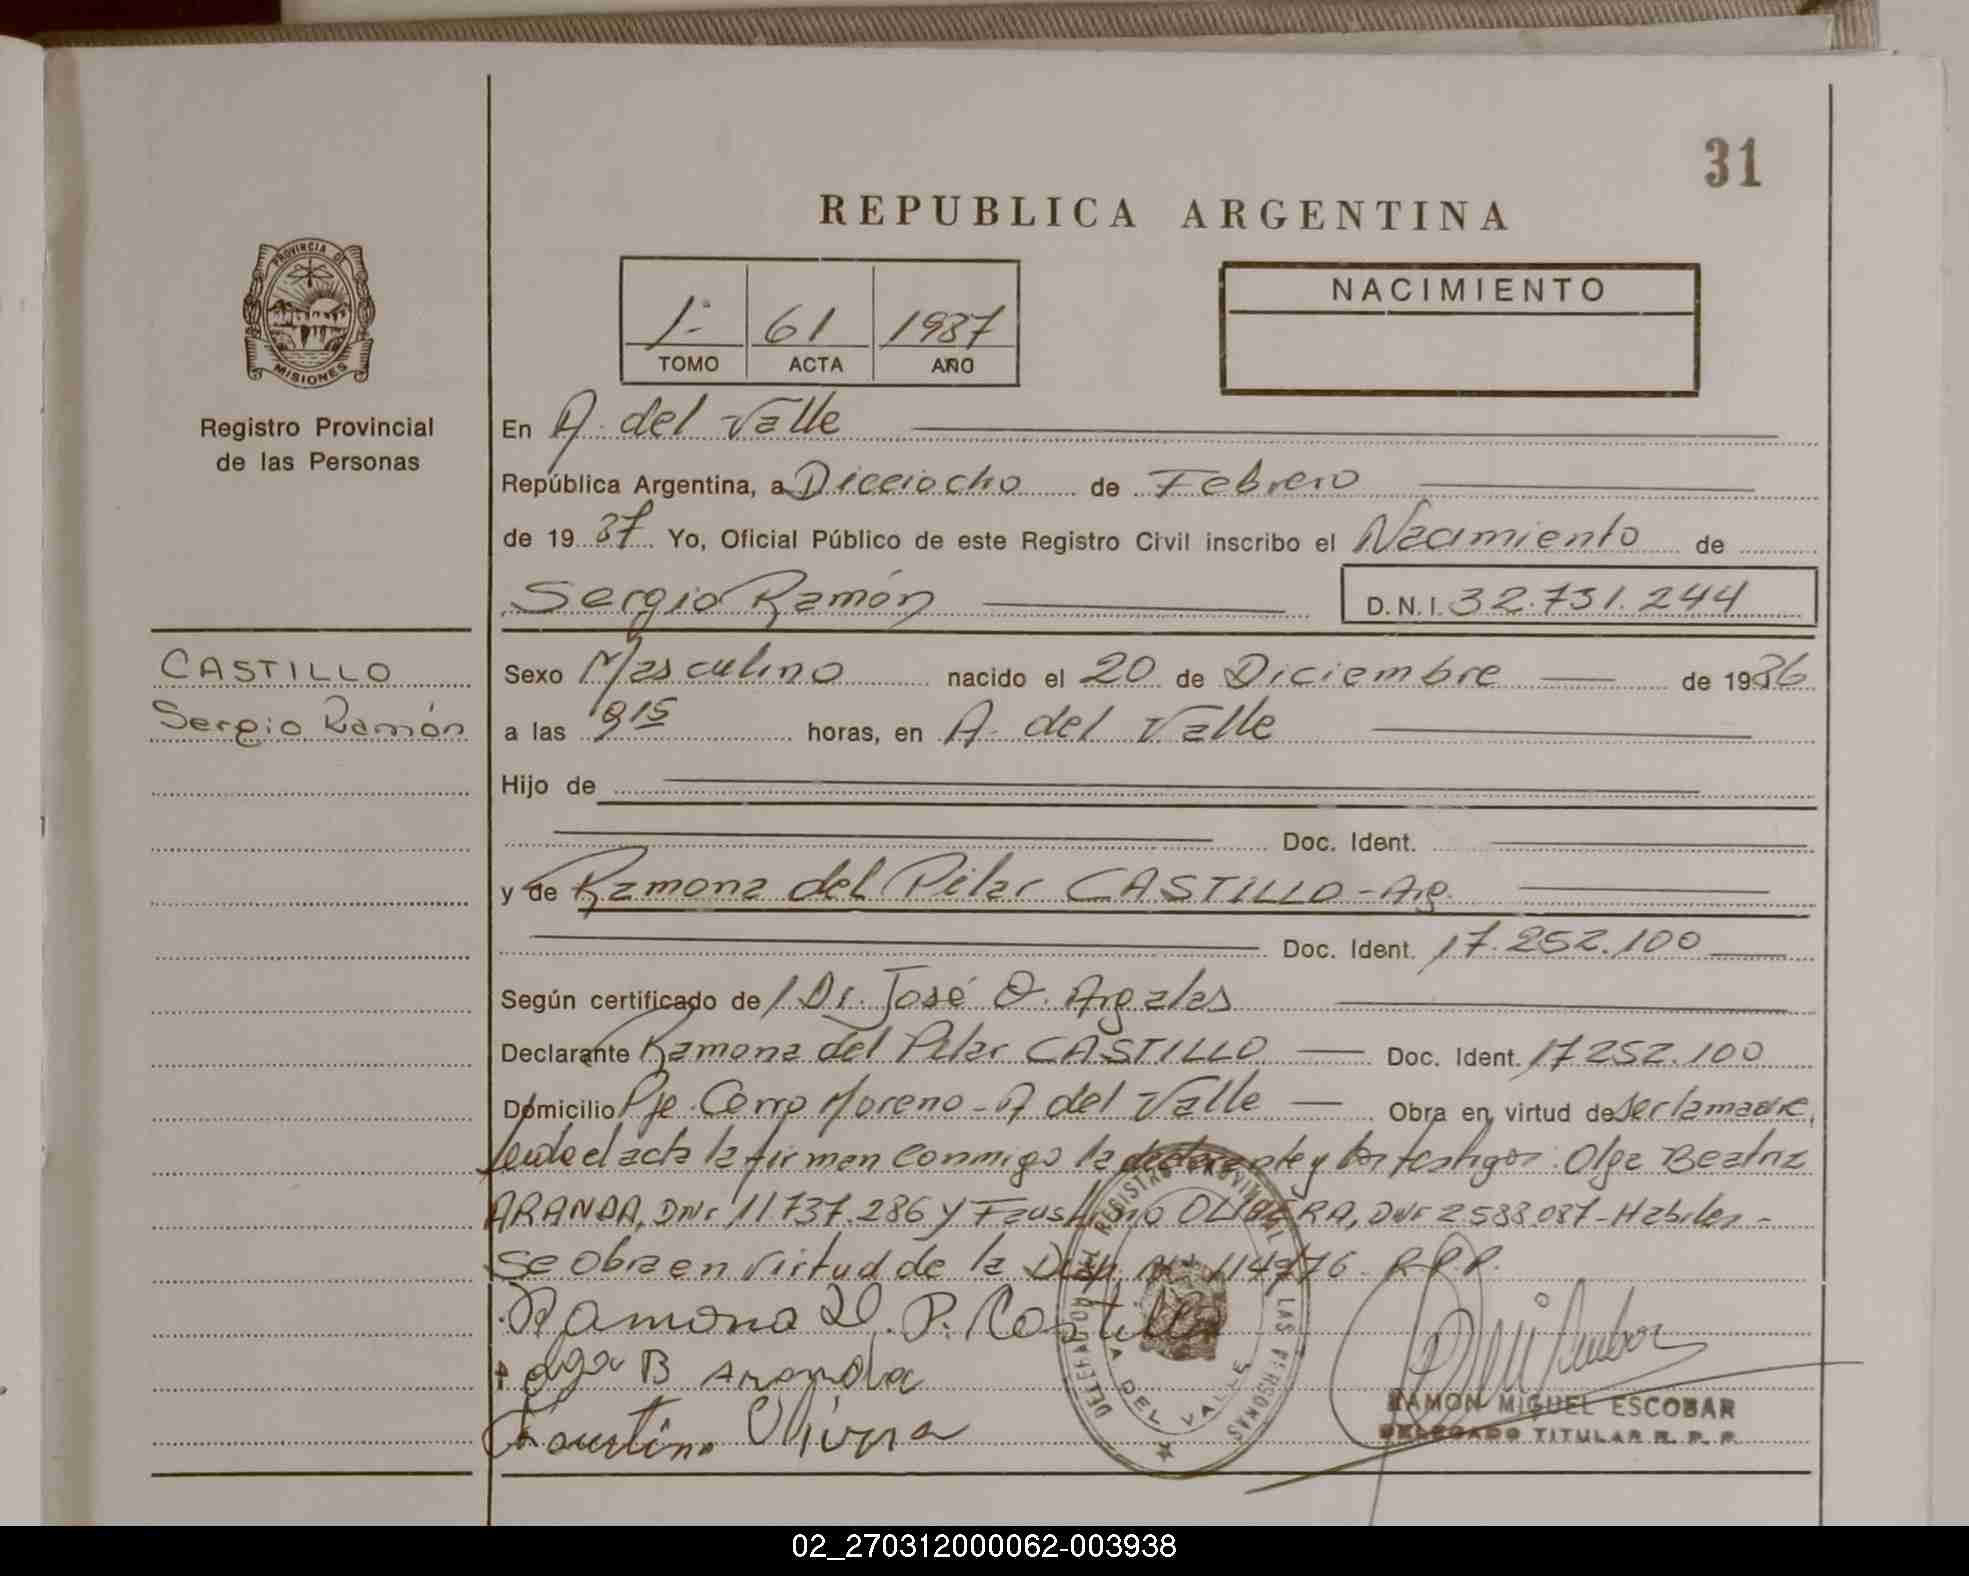 31
REPUBLICA ARGENTINA
PROVINCIA DE
MISIONES
Registro Provincial
de las Personas
1º 61 1987
TOMO ACTA AÑO
NACIMIENTO
En A. del Valle
República Argentina, a Dieciocho de Febrero
de 19 87 Yo, Oficial Público de este Registro Civil inscribo el Nacimiento de
Sergio Ramón D.N.I. 32.731.244
CASTILLO
Sergio Ramón
Sexo Masculino nacido el 20 de Diciembre de 1986
a las 9 15 horas, en A. del Valle
Hijo de
Doc. Ident.
y de Ramona del Pilar CASTILLO - Arg.
Doc. Ident. 17.252.100
Según certificado de / Dr. José O. Argalas
Declarante Ramona del Pilar CASTILLO Doc. Ident. 17252.100
Domicilio Pje. Cerro Moreno - A del Valle Obra en virtud de ser la madre,
el acta la firman conmigo la declarante y los testigos: Olga Beatriz
ARANDA, DNI 11737.286 y Faustino OLIVERA, DNI 2588087 - Habiles -
se obra en virtud de la Disp. Nº 114/76. R.P.P.
Ramona D. P. Castillo
Olga B Aranda
Faustino Olivera
DELEGACION REGISTRO PROVINCIAL LAS PERSONAS
A DEL VALLE
RAMON MIGUEL ESCOBAR
DELEGADO TITULAR R. P. P.
02_270312000062-003938